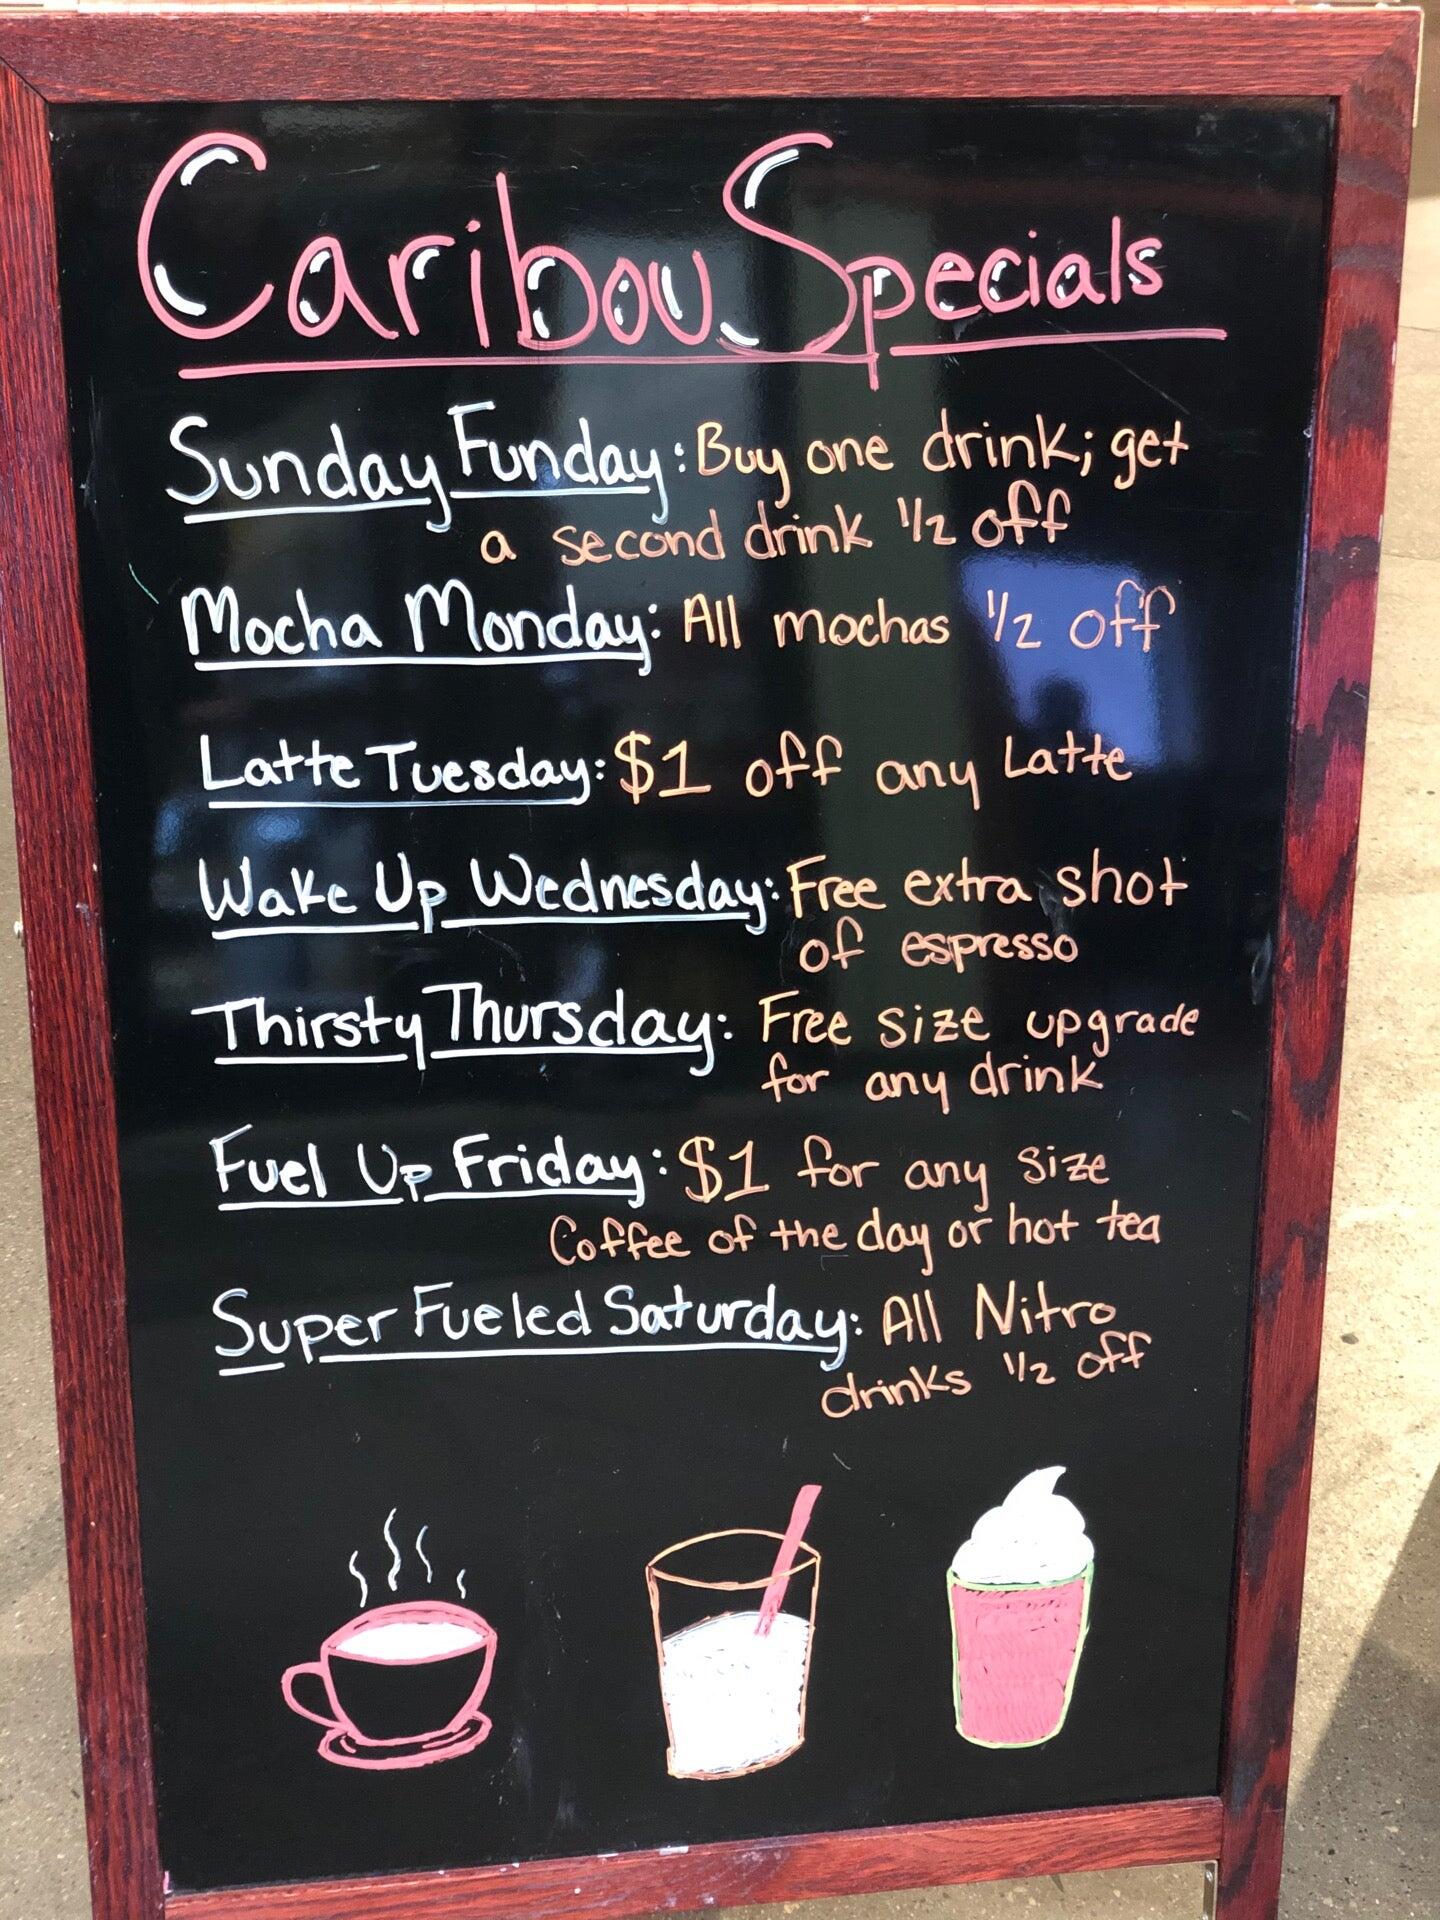 Caribou Specials
Sunday Funday: Buy one drink; get
a second drink 1/2 off
Mocha Monday: All mochas 1/2 off
Latte Tuesday: $1 off any Latte
Wake Up Wednesday: Free extra shot
of espresso
Thirsty Thursday: Free size upgrade
for any drink
Fuel Up Friday: $1 for any size
Coffee of the day or hot tea
Super Fueled Saturday: All Nitro
drinks 1/2 off